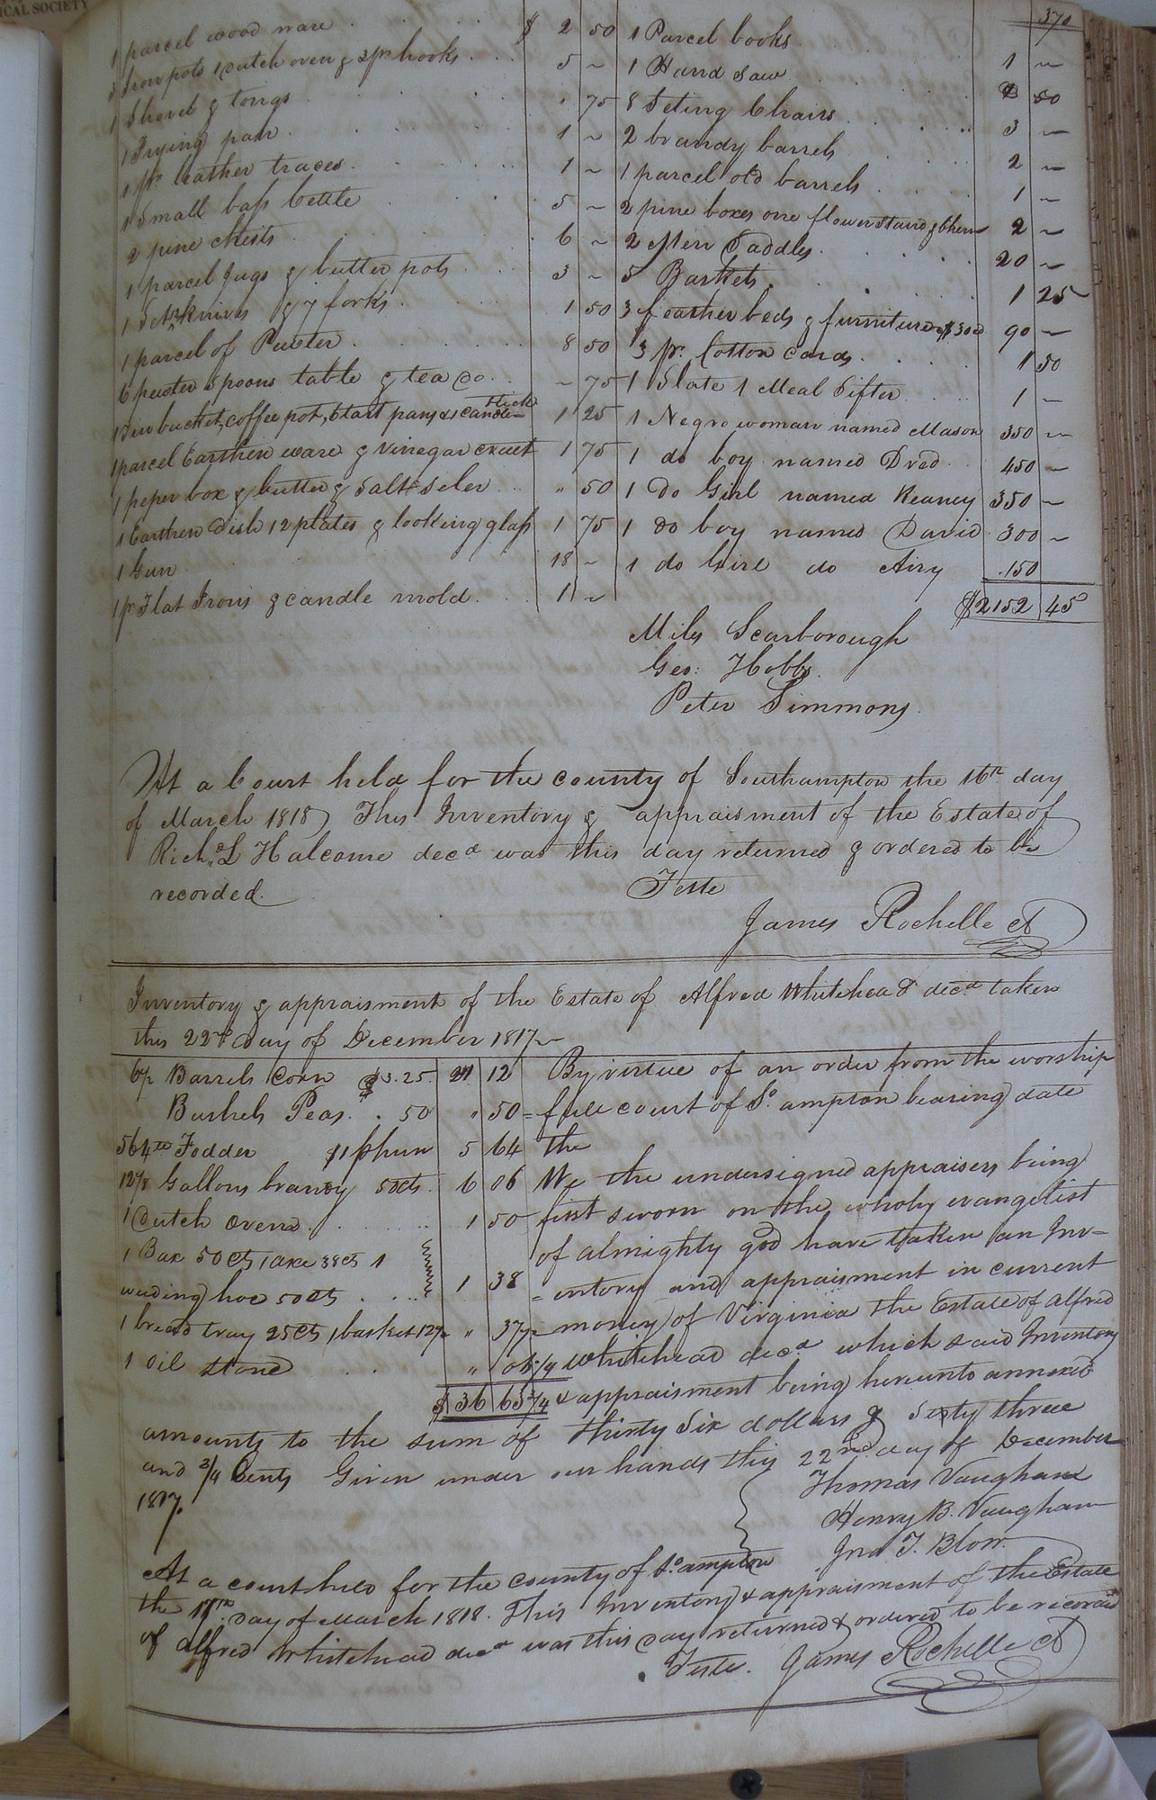 ICAL SOCIETY
370
1 parcel wood ware $ 2 50
3 Iron pots 1 dutch oven & 2 pr hooks 5 ~
1 Shovel & tongs " 75
1 Frying pan 1 ~
1 pr. leather traces 1 ~
1 Small bass kettle 5 ~
2 pine Chests 6 ~
1 parcel Jugs & butter pots 3 ~
1 Set knives & 7 forks 1 50
1 parcel of Pewter 8 50
6 pewter Spoons table & tea do ~ 75
1 Tin bucket, coffee pot, 6 tart pans & 1 candle stick 1 25
1 parcel Earthen ware & vinegar cruet 1 75
1 peper box & butter & Salt Seler " 50
1 Earthen Dish 12 plates & looking glass 1 75
1 Gun 18 ~
1 pr Flat Irons & candle mold 1 ~
1 Parcel books 1 ~
1 Hand Saw 50
8 Seting Chairs 3 ~
2 brandy barrels 2 ~
1 parcel old barrels 1 ~
2 pine boxes one flower stand & 2 ~
2 Men Saddles 20 ~
5 Baskets 1 25
3 feather beds & furniture @ $30 90 ~
3 pr. Cotton Cards 1 50
1 Slate 1 Meal Sifter 1 ~
1 Negro woman named Mason 350 ~
1 do boy named Dred 450 ~
1 Do Girl named Keaney 350 ~
1 do boy named David 300 ~
1 do Girl do Airy 150
$2152 45
Miles Scarborough
Geo: Hobbs
Peter Simmons
At a Court held for the county of Southampton the 16th day
of March 1818 This Inventory & appraisment of the Estate of
Richd L Halcome decd was this day returned & ordered to be
recorded. Teste
James Rochelle Ct
Inventory & appraisment of the Estate of Alfred Whitehead decd taken
this 22nd day of December 1817
Barrels Corn $3.25 21 12
Bushels Peas . 50 " 50
564 lb Fodder 5 64
Gallons brandy 50cts 6 06
1 Dutch oven 1 50
1 Bar 50cts 1 axe 38cts 1
weeding hoe 50cts 1 38
1 bread tray 25cts 1 basket 12½ " 37½
1 oil stone " 06¼
$ 36 63¾
By virtue of an order from the worship
full court of So. ampton bearing date
the
We the undersigned appraisers being
first sworn on the wholy evangelist
of almighty god have taken an Inv-
-entory and appraisment in current
money of Virginia the Estate of Alfred
Whitehead decd which said Inventory
& appraisment being hereunto annexed
amounts to the sum of thirty Six dollars & Sixty three
and 3/4 Cents Given under our hands this 22nd day of December
1817.
Thomas Vaughan
Henry B. Vaughan
Jno T. Blow
At a court held for the county of So. ampton
the 17th day of March 1818. This Inventory & appraisment of the Estate
of Alfred Whitehead decd was this day returned & ordered to be recorded
Teste. James Rochelle Ct